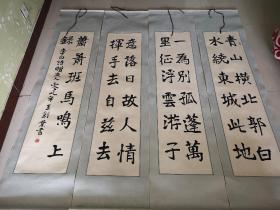 青山橫北郭白
水繞東城此地
一為別孤蓬萬
里征浮雲游子
意落日故人情
揮手去自茲去
蕭蕭班馬鳴上
錄李白詩
書